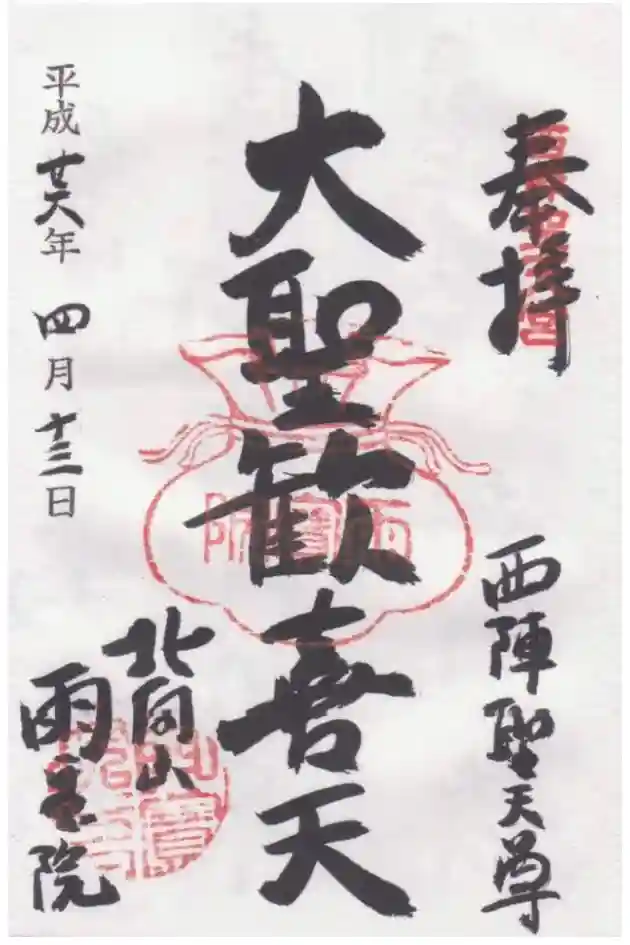 奉拝
西陣聖天尊
大聖歓喜天
雨寶院
平成廿六年四月十三日
北向山
雨宝院